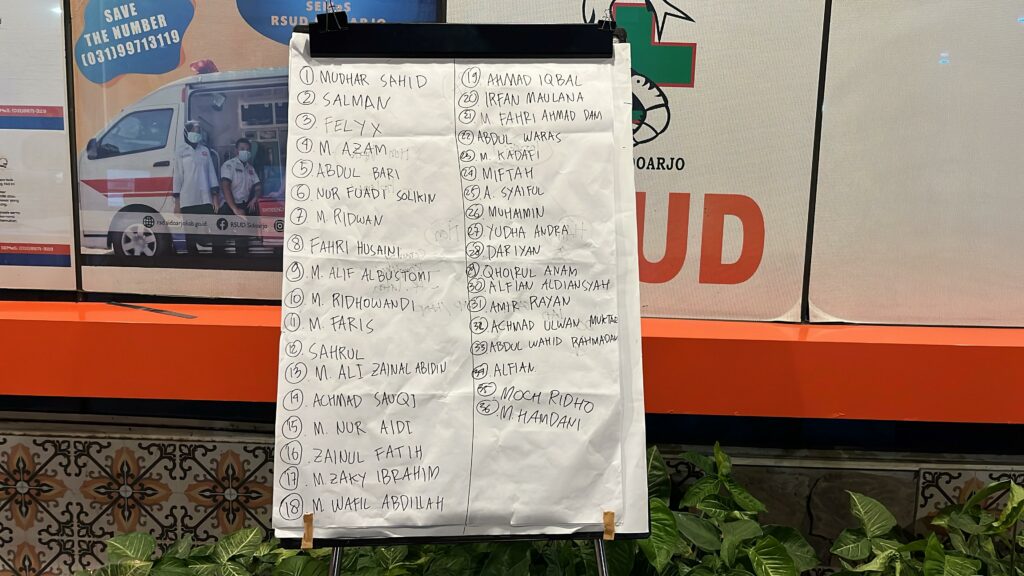 SAVE
THE NUMBER
(031)99713119
RSUD SIDOARJO
rsd.sidoarjokab.go.id
RSUD Sidoarjo
① MUDHAR SAHID
② SALMAN
③ FELYX
④ M. AZAM
⑤ ABDUL BARI
⑥ NUR FUADI SOLIKIN
⑦ M. RIDWAN
⑧ FAHRI HUSAINI
⑨ M. ALIF ALBUKTOMI
⑩ M. RIDHOWANDI
⑪ M. FARIS
⑫ SAHRUL
⑬ M. ALI ZAINAL ABIDIN
⑭ ACHMAD SAUQI
⑮ M. NUR AIDI
⑯ ZAINUL FATIH
⑰ M ZAKY IBRAHIM
⑱ M WAFIL ABDILLAH
⑲ AHMAD IQBAL
⑳ IRFAN MAULANA
㉑ M FAHRI AHMAD DAM
㉒ ABDUL WARAS
㉓ M. KADAFI
㉔ MIFTAH
㉕ A. SYAIFUL
㉖ MUHAIMIN
㉗ YUDHA ANDRA
㉘ DAFIYAN
㉙ QHOIRUL ANAM
㉚ ALFIAN ALDIANSYAH
㉛ AMIR RAYAN
㉜ ACHMAD ULWAN MUKTAE
㉝ ABDUL WAHID RAHMADAN
㉞ ALFIAN
㉟ MOCH RIDHO
㊱ M HAMDANI
DOARJO
UD